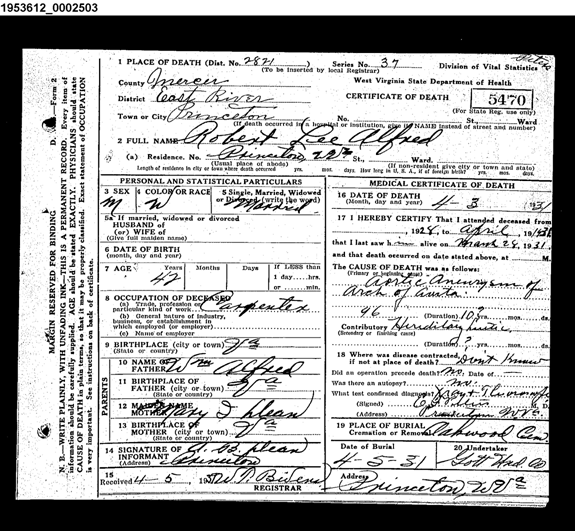 1953612_0002503
1 PLACE OF DEATH (Dist. No. 2821 Series No. 37 Division of Vital Statistics
(To be inserted by local Registrar)
County Mercer West Virginia State Department of Health
District East River CERTIFICATE OF DEATH 5470
(For State Reg. use only)
Town or City Princeton No. St., Ward.
(If death occurred in a hospital or institution, give its NAME instead of street and number)
2 FULL NAME Robert Lee Alfred
(a) Residence. No. Princeton, W Va St., Ward.
(Usual place of abode) (If non-resident give city or town and state)
Length of residence in city or town where death occurred yrs. mos. days. How long in U. S., if of foreign birth? yrs. mos. days
PERSONAL AND STATISTICAL PARTICULARS
3 SEX 4 COLOR OR RACE 5 Single, Married, Widowed
or Divorced (write the word)
M W Married
5a If married, widowed or divorced
HUSBAND of
(or) WIFE of
(Give full maiden name)
6 DATE OF BIRTH
(month, day and year)
7 AGE Years Months Days If LESS than
1 day.....hrs.
or......min.
42
8 OCCUPATION OF DECEASED
(a) Trade, profession or
particular kind of work Carpenter
(b) General nature of industry,
business, or establishment in
which employed (or employer)
(c) Name of employer
9 BIRTHPLACE (city or town) Va
(State or country)
PARENTS
10 NAME OF
FATHER Wm Alfred
11 BIRTHPLACE OF
FATHER (city or town) Va
(State or country)
12 MAIDEN NAME
MOTHER
13 BIRTHPLACE OF
MOTHER (city or town) Va
(State or country)
14 SIGNATURE OF
INFORMANT
(Address) Princeton
15
Received 4-5, 193 W. P. Bivens
REGISTRAR
MEDICAL CERTIFICATE OF DEATH
16 DATE OF DEATH
(Month, day and year) 4-3 1931
17 I HEREBY CERTIFY That I attended deceased from
, 1928, to April, 1931
that I last saw him alive on March 28, 1931.
and that death occurred on date stated above, at M.
The CAUSE OF DEATH was as follows:
Aortic Aneurysm of
Arch of Aorta
96 (Duration) 10? yrs. mos. ds.
Contributory
(Duration) ? yrs. mos. ds.
18 Where was disease contracted,
if not at place of death? Don't Know
Did an operation precede death? No.
Was there an autopsy? No.
What test confirmed diagnosis?
(Signed) M. D.
(Address) Princeton W Va
19 PLACE OF BURIAL
Cremation or Removal Oakwood Cem
Date of Burial 20 Undertaker
4-5-31
Address Princeton W Va
MARGIN RESERVED FOR BINDING D. —Form 2
N. B.—WRITE PLAINLY, WITH UNFADING INK—THIS IS A PERMANENT RECORD. Every item of
information should be carefully supplied. AGE should be stated EXACTLY. PHYSICIANS should state
CAUSE OF DEATH in plain terms, so that it may be properly classified. Exact statement of OCCUPATION
is very important. See instructions on back of certificate.